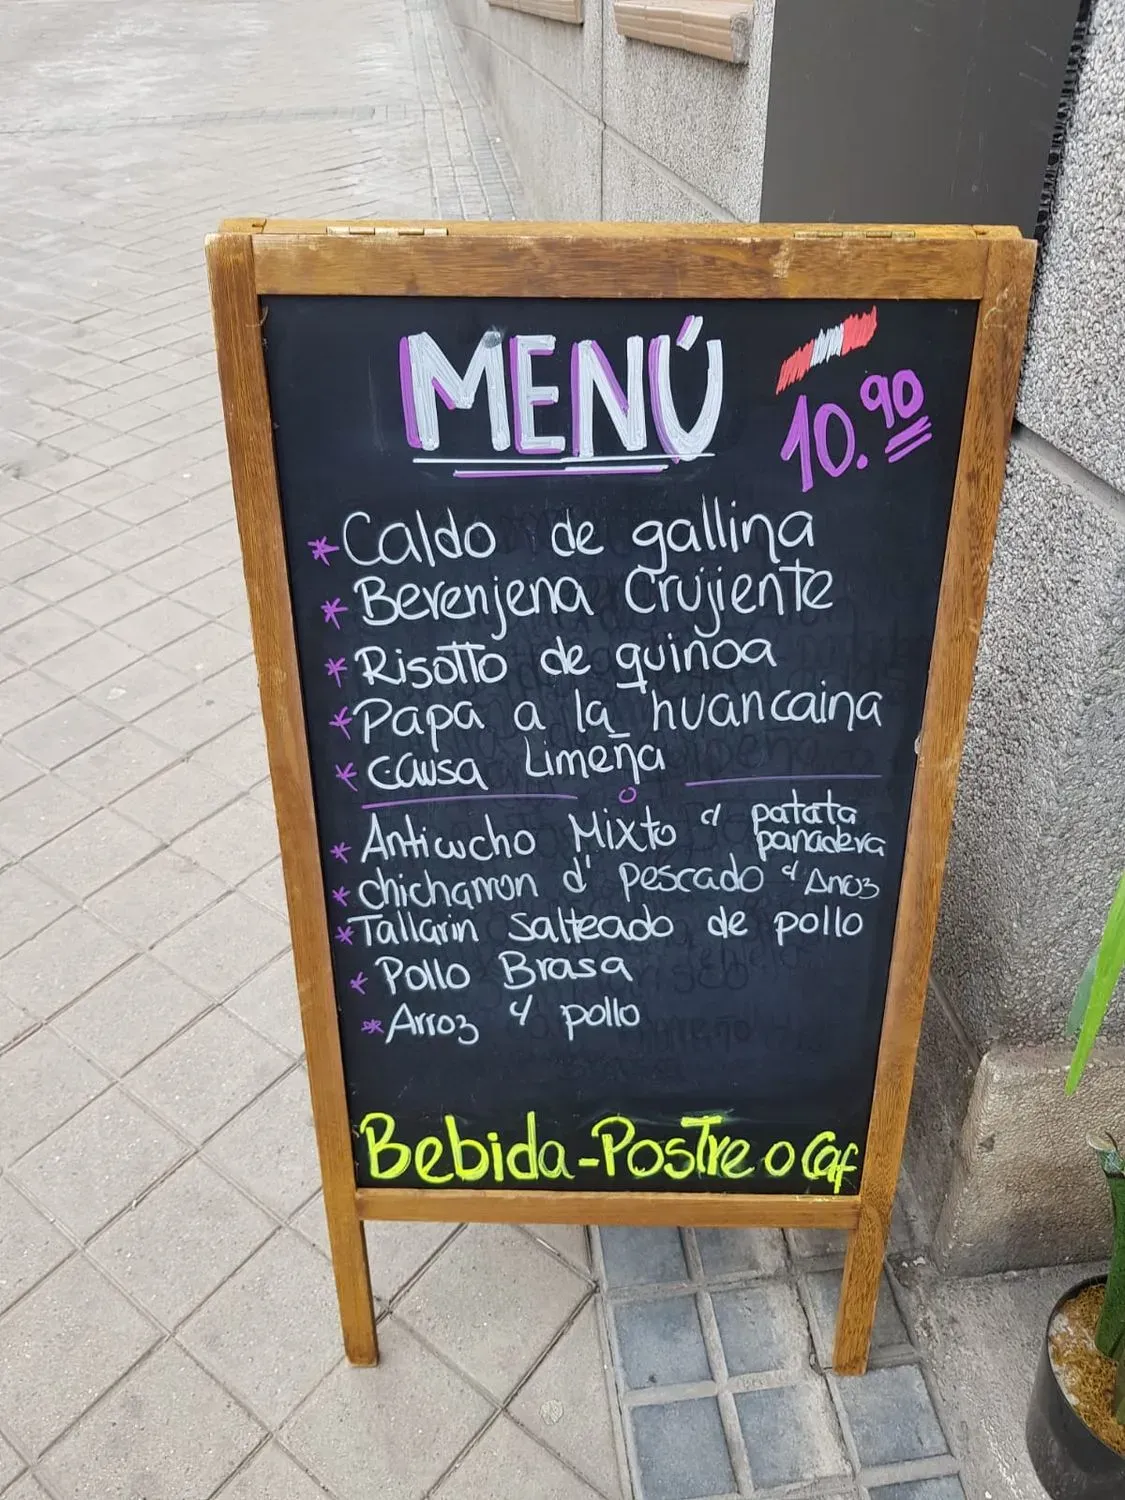 MENÚ
10.90
* Caldo de gallina
* Berenjena Crujiente
* Risotto de quinoa
* Papa a la huancaina
* Causa Limeña
* Anticucho Mixto c/ patata panadera
* chicharron d' pescado c/ Arroz
* Tallarin salteado de pollo
* Pollo Brasa
* Arroz c/ pollo
Bebida-Postre o Caf